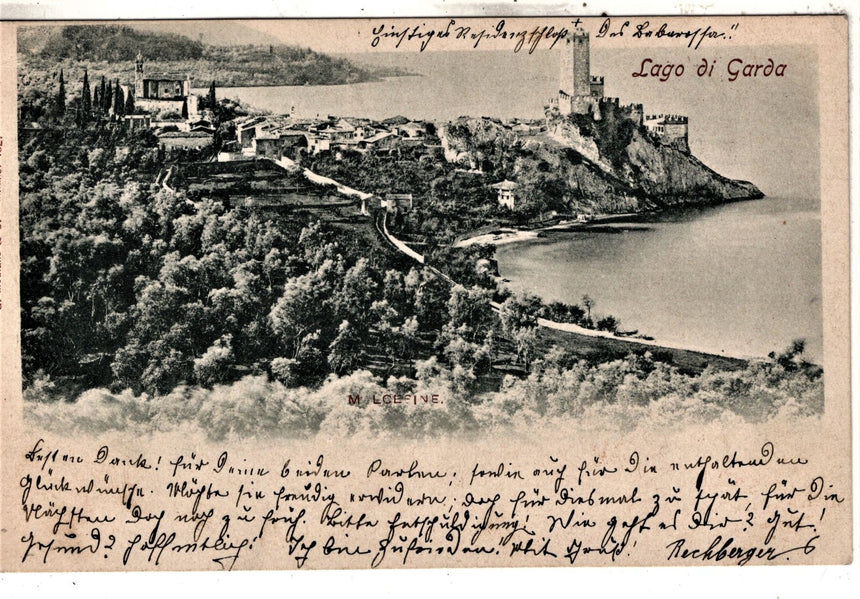 Einstiges Residenzschloß des Babarossa!!
Lago di Garda
MALCESINE.
Besten Dank! für Deine beiden Karten, sowie auch für die enthaltenden
Glückwünsche. Möchte sie freudig erwidern, doch für diesmal zu spät, für die
Nächsten doch noch zu früh. Bitte Entschuldigung! Wie geht es Dir? Gut!
Gesund? hoffentlich! Ich bin zufrieden! Mit Gruß! Rechberger.